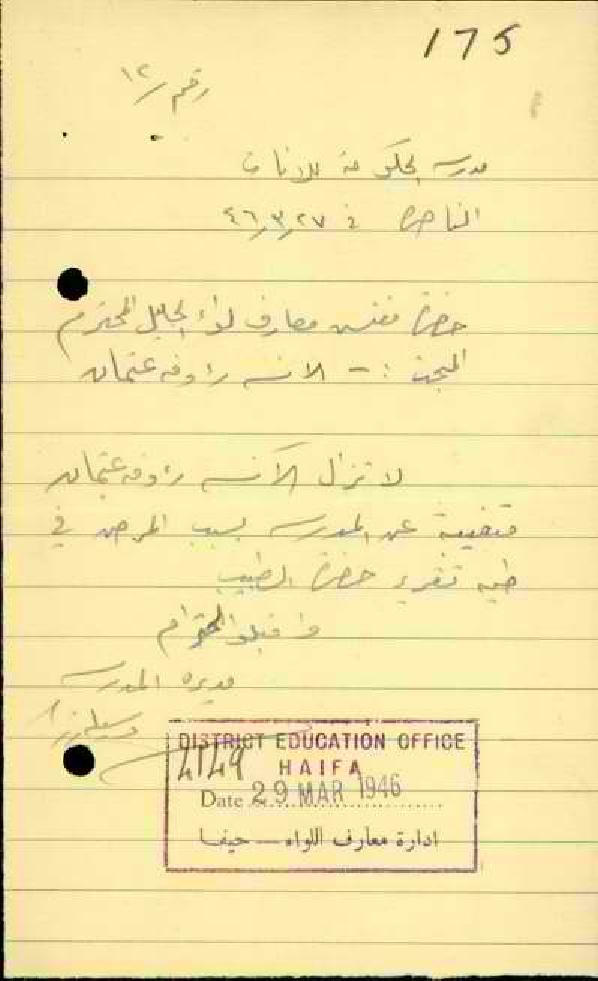 175
رقم / ١٢
مدرسة الحكومة للاناث
الناصرة في ٢٧/٣/٤٦
حضرة مفتش معارف لواء الجليل المحترم
المبحث :- الانسه رؤوفه عثمان
لا تزال الآنسه رؤوفه عثمان
متغيبة عن المدرسه بسبب المرض في
طيه تقرير حضرة الطبيب
واقبلوا احترام
مديرة المدرسه
DISTRICT EDUCATION OFFICE
HAIFA
Date 29 MAR 1946
ادارة معارف اللواء — حيفا